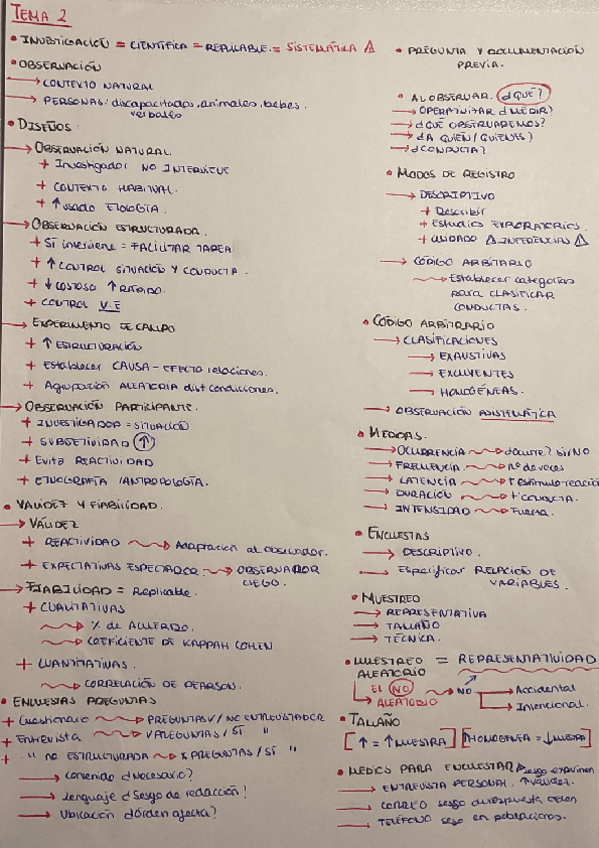 TEMA 2
• INVESTIGACIÓN = CIENTÍFICA = REPLICABLE = SISTEMÁTICA
• OBSERVACIÓN
→ CONTEXTO NATURAL
→ PERSONAS: discapacitados, animales, bebes.
verbales
• DISEÑOS:
→ OBSERVACIÓN NATURAL.
+ Investigador NO INTERVIENE
+ CONTEXTO HABITUAL.
+ ↑ usado ETOLOGÍA.
→ OBSERVACIÓN ESTRUCTURADA.
+ SÍ interviene = FACILITAR TAREA
+ ↑ CONTROL SITUACIÓN Y CONDUCTA.
+ ↓ COSTOSO ↑ RÁPIDO.
+ CONTROL V.E
→ EXPERIMENTO DE CAMPO
+ ↑ ESTRUCTURACIÓN
+ Establecer CAUSA - EFECTO relaciones.
+ Agrupación ALEATORIA dist condiciones.
→ OBSERVACIÓN PARTICIPANTE.
+ INVESTIGADOR = SITUACIÓN
+ SUBJETIVIDAD ↑
+ Evita REACTIVIDAD
+ ETNOGRAFÍA /ANTROPOLOGÍA.
• VALIDEZ Y FIABILIDAD.
→ VALIDEZ
+ REACTIVIDAD → Adaptación al observador.
+ EXPECTATIVAS ESPECTADOR → OBSERVADOR
CIEGO.
→ FIABILIDAD = Replicable.
+ CUALITATIVAS
→ % de ACUERDO.
→ COEFICIENTE DE KAPPAH COHEN
+ CUANTITATIVAS.
→ CORRELACIÓN DE PEARSON.
• ENCUESTAS PREGUNTAS
+ Cuestionario → PREGUNTAS ✓ / NO ENTREVISTADOR
+ Entrevista → ✓ PREGUNTAS / SÍ "
+ " no ESTRUCTURADA → X PREGUNTAS / SÍ "
→ Contenido ¿Necesario?
→ Lenguaje ¿Sesgo de redacción!
→ Ubicación ¿Orden afecta?
• PREGUNTA Y DOCUMENTACIÓN
PREVIA.
• AL OBSERVAR. ¿QUÉ?
→ OPERATIVIZAR ¿MEDIR?
→ ¿QUÉ OBSERVAREMOS?
→ ¿A QUIÉN/QUIENES?
→ ¿CONDUCTA?
• MODOS DE REGISTRO
→ DESCRIPTIVO
+ Describir
+ Estudios EXPLORATORIOS.
+ CUIDADO INFERENCIAS
→ CÓDIGO ARBITRARIO
→ Establecer categorías
para CLASIFICAR
CONDUCTAS.
• CÓDIGO ARBITRARIO
→ CLASIFICACIONES
→ EXHAUSTIVAS
→ EXCLUYENTES
→ HOMOGÉNEAS.
→ OBSERVACIÓN ASISTEMÁTICA
• MEDIDAS.
→ OCURRENCIA → ¿ocurre? SI/NO
→ FRECUENCIA → nº de veces
→ LATENCIA → t estímulo-reacción
→ DURACIÓN → t CONDUCTA.
→ INTENSIDAD → Fuerza.
• ENCUESTAS
→ DESCRIPTIVO.
→ Especificar RELACIÓN DE
VARIABLES.
• MUESTREO
→ REPRESENTATIVA
→ TAMAÑO
→ TÉCNICA.
• MUESTREO = REPRESENTATIVIDAD
ALEATORIO
EL NO → NO → Accidental
ALEATORIO → Intencional.
• TAMAÑO
[↑ = ↑ MUESTRA] [HOMOGENEA = ↓ MUESTRA]
• MEDIOS PARA ENCUESTAR
→ ENTREVISTA PERSONAL.
→ CORREO sesgo
→ TELÉFONO en poblaciones.